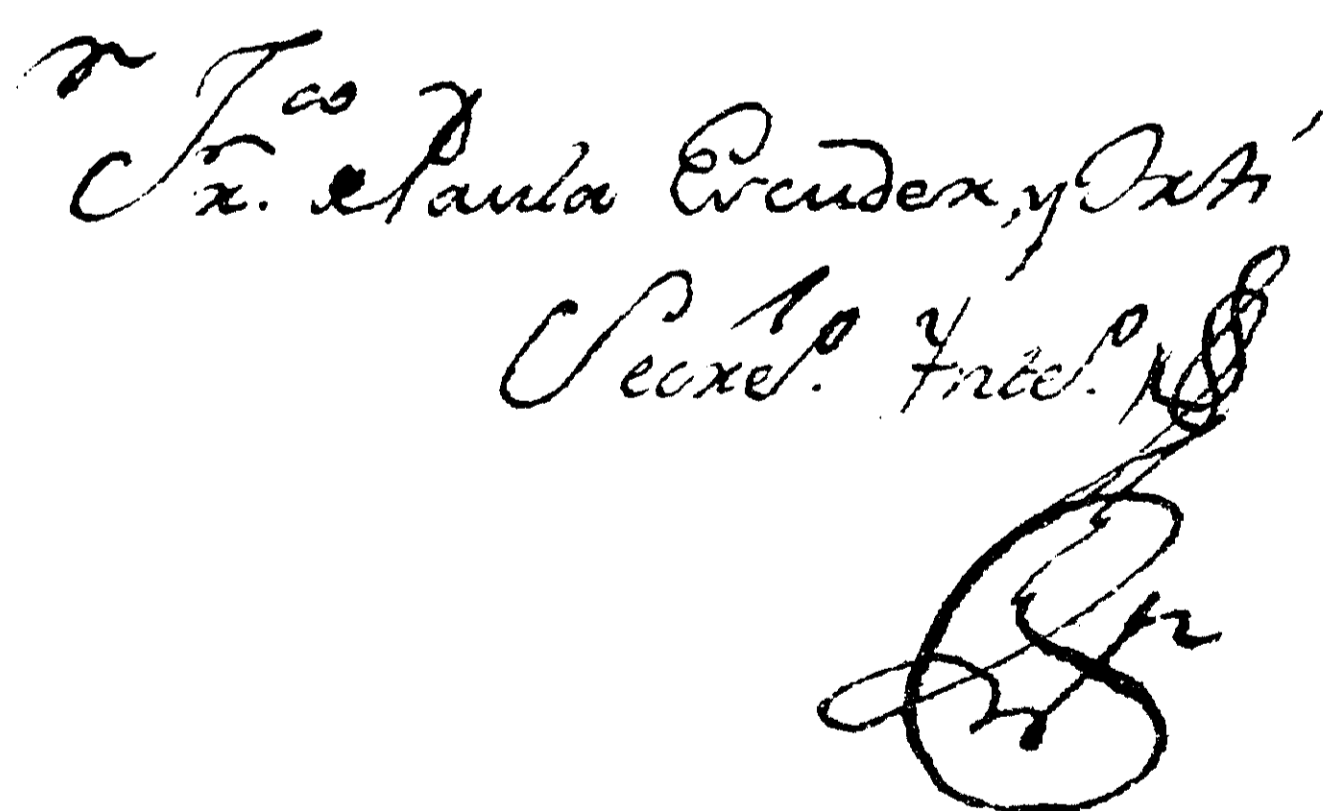 Fr.co de Paula Escuder, y Orti
Secret.o Int.o